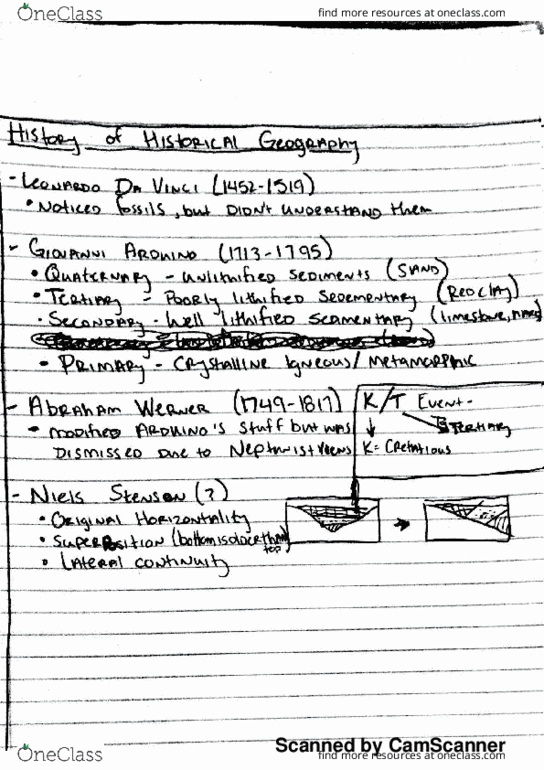 OneClass
find more resources at oneclass.com
History of Historical Geography
- Leonardo Da Vinci (1452-1519)
• Noticed fossils, but didn't understand them
- Giovanni Arduino (1713-1795)
• Quaternary - unlithified sediments (sand)
• Tertiary - Poorly lithified sedementary (Red clay)
• Secondary - well lithified sedmentary (limestone,
• Primary - crystalline igneous/metamorphic
- Abraham Werner (1749-1817)
• modified Arduino's stuff but was
dismissed due to Neptunist views
K/T Event -
Tertiary
K = Cretatious
- Niels Stenson (?)
• Original Horizontality
• Superposition (bottom is older than
top)
• Lateral continuity
Scanned by CamScanner
OneClass
find more resources at oneclass.com